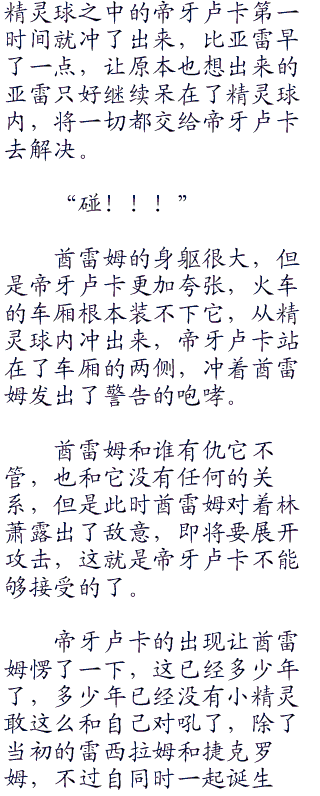 精灵球之中的帝牙卢卡第一
时间就冲了出来，比亚雷早
了一点，让原本也想出来的
亚雷只好继续呆在了精灵球
内，将一切都交给帝牙卢卡
去解决。
“碰！！！”
酋雷姆的身躯很大，但
是帝牙卢卡更加夸张，火车
的车厢根本装不下它，从精
灵球内冲出来，帝牙卢卡站
在了车厢的两侧，冲着酋雷
姆发出了警告的咆哮。
酋雷姆和谁有仇它不
管，也和它没有任何的关
系，但是此时酋雷姆对着林
萧露出了敌意，即将要展开
攻击，这就是帝牙卢卡不能
够接受的了。
帝牙卢卡的出现让酋雷
姆愣了一下，这已经多少年
了，多少年已经没有小精灵
敢这么和自己对吼了，除了
当初的雷西拉姆和捷克罗
姆，不过自同时一起诞生